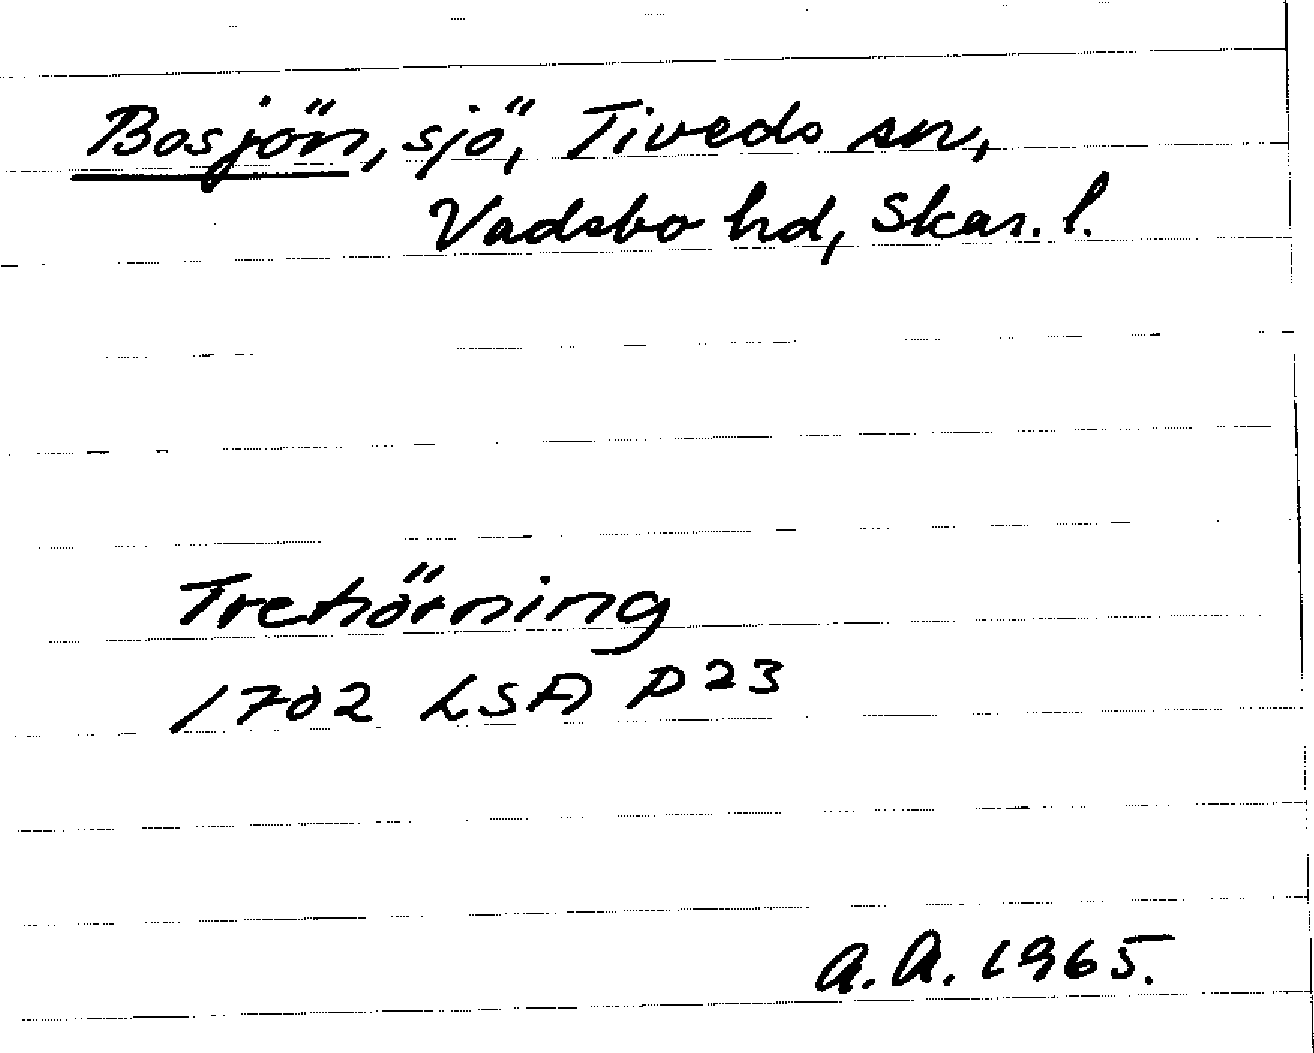 Bosjön, sjö, Tiveds sn,
Vadsbo hd, Skar. l.
Trehörning
1702 LSA P23
A.A. 1965.